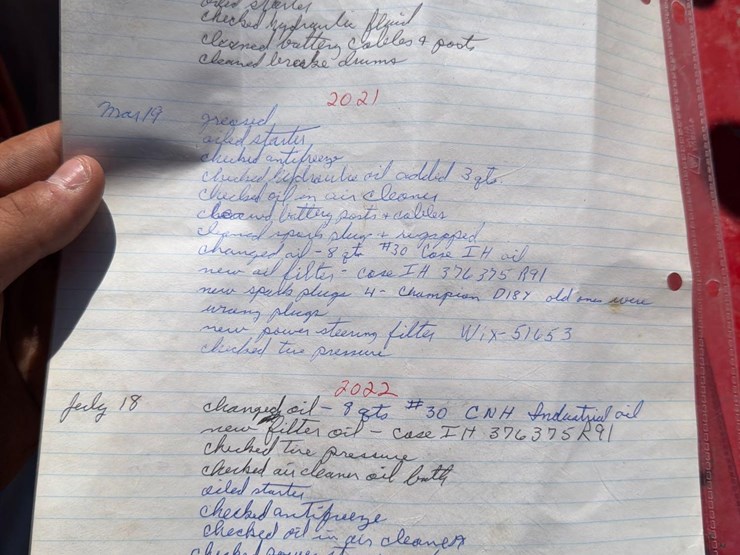 oiled starter
checked hydraulic fluid
cleaned battery cables & posts
cleaned breake drums
2021
Mar 19 greased
oiled starter
checked antifreeze
checked hydraulic oil added 3 qts.
checked oil in air cleaner
cleaned battery posts & cables
cleaned spark plugs & regapped
changed oil - 8 qts #30 Case IH oil
new oil filter - case IH 376375 R91
new spark plugs 4 - Champion D18Y old ones were
wrong plugs
new power steering filter Wix-51653
checked tire pressure
2022
July 18 changed oil - 8 qts #30 CNH Industrial oil
new filter oil - case IH 376375R91
checked tire pressure
checked air cleaner oil bath
oiled starter
checked antifreeze
checked oil in air cleaner
checked power